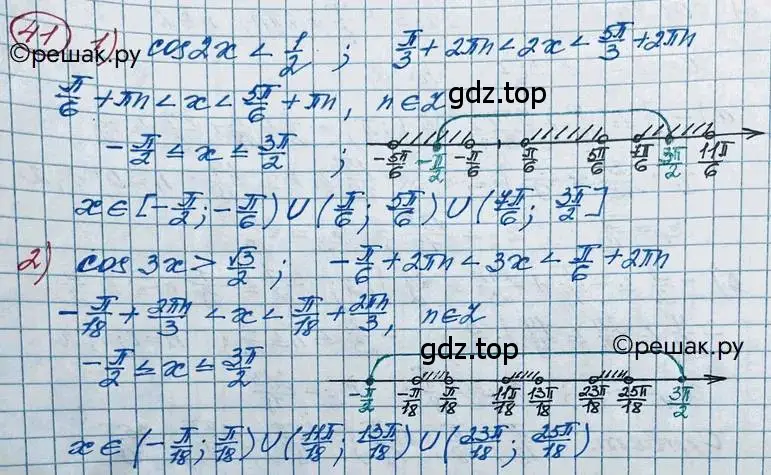 41 1) cos2x < 1/2 ; π/3 + 2πn < 2x < 5π/3 + 2πn
©решак.ру
π/6 + πn < x < 5π/6 + πn, n∈Z
gdz.top
-π/2 ≤ x ≤ 3π/2 ;
-5π/6 -π/2 -π/6 π/6 5π/6 7π/6 3π/2 11π/6
x∈[-π/2; -π/6) ∪ (π/6; 5π/6) ∪ (7π/6; 3π/2]
2) cos3x > √3/2 ; -π/6 + 2πn < 3x < π/6 + 2πn
-π/18 + 2πn/3 < x < π/18 + 2πn/3, n∈Z
©решак.ру
gdz.top
-π/2 ≤ x ≤ 3π/2
-π/2 -π/18 π/18 11π/18 13π/18 23π/18 25π/18 3π/2
x∈(-π/18; π/18) ∪ (11π/18; 13π/18) ∪ (23π/18; 25π/18)